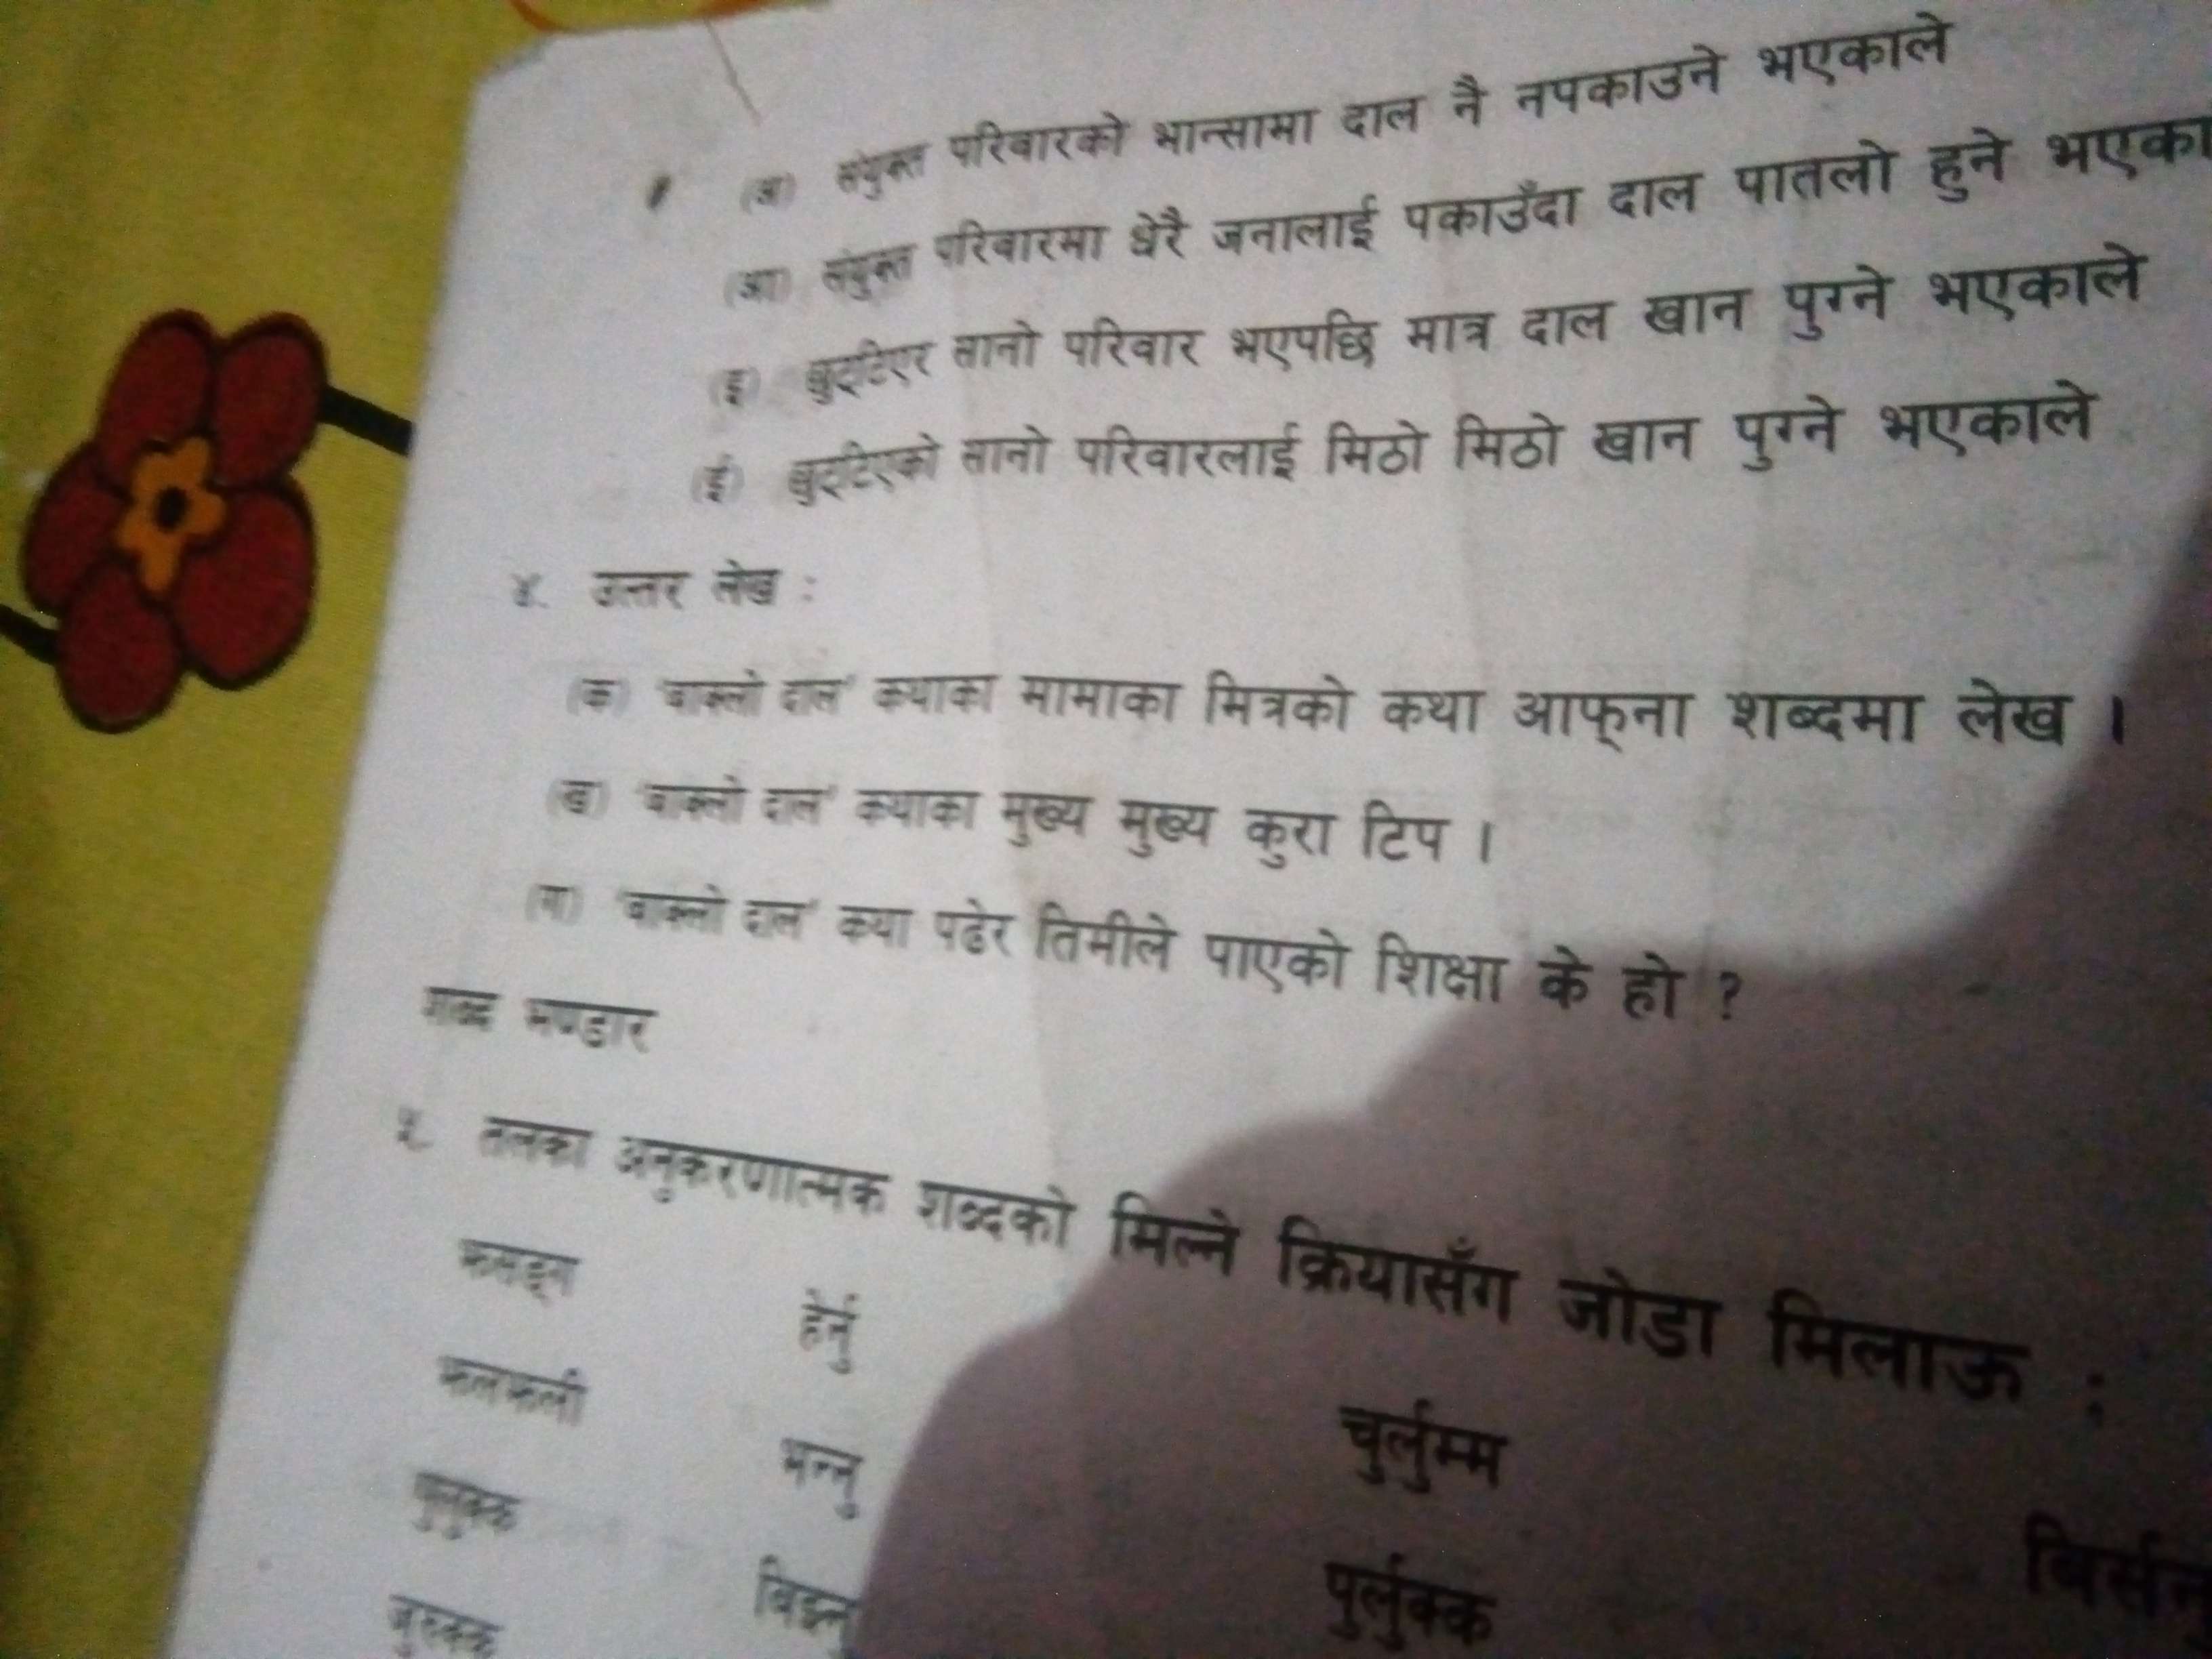 (अ) संयुक्त परिवारको भान्सामा दाल नै नपकाउने भएकाले
(आ) संयुक्त परिवारमा धेरै जनालाई पकाउँदा दाल पातलो हुने भएका
(इ) छुट्टिएर सानो परिवार भएपछि मात्र दाल खान पुग्ने भएकाले
(ई) छुट्टिएको सानो परिवारलाई मिठो मिठो खान पुग्ने भएकाले
४. उत्तर लेख :
(क) 'बाक्लो दाल' कथाका मामाका मित्रको कथा आफ्ना शब्दमा लेख ।
(ख) 'बाक्लो दाल' कथाका मुख्य मुख्य कुरा टिप ।
(ग) 'बाक्लो दाल' कथा पढेर तिमीले पाएको शिक्षा के हो ?
शब्द भण्डार
५. तलका अनुकरणात्मक शब्दको मिल्ने क्रियासँग जोडा मिलाऊ :
हेर्नु
झलझली भन्नु चुर्लुम्म
पुलुक्क बिझ्नु पुर्लुक्क बिर्सनु
जुरुक्क